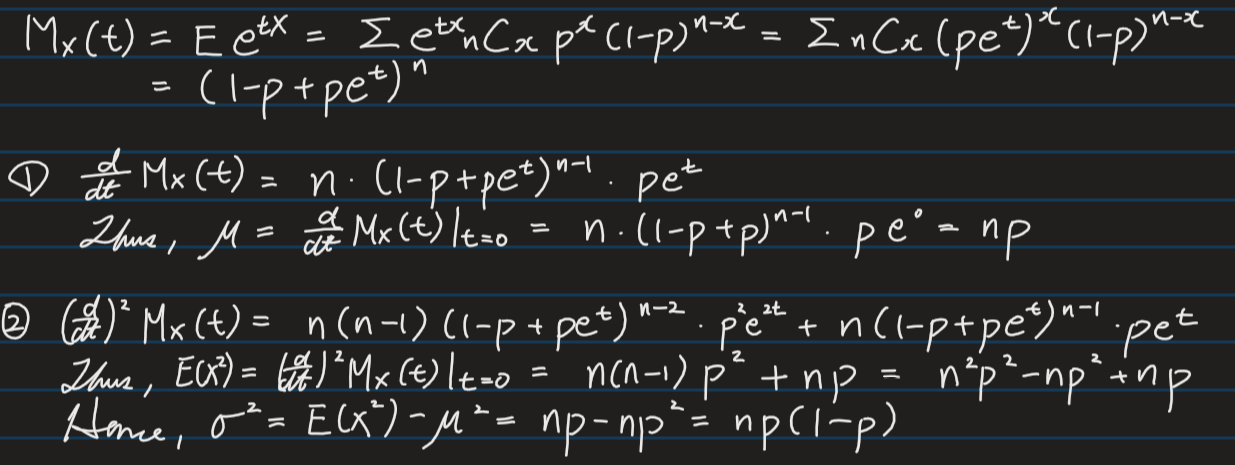 Mx(t) = E e^{tX} = Σ e^{tx} nCx p^x (1-p)^{n-x} = Σ nCx (pe^t)^x (1-p)^{n-x}
= (1-p+pe^t)^n
① d/dt Mx(t) = n · (1-p+pe^t)^{n-1} · pe^t
Thus, μ = d/dt Mx(t)|t=0 = n · (1-p+p)^{n-1} · pe^0 = np
② (d/dt)^2 Mx(t) = n(n-1) (1-p+pe^t)^{n-2} · p^2e^{2t} + n(1-p+pe^t)^{n-1} · pe^t
Thus, E(X^2) = (d/dt)^2 Mx(t)|t=0 = n(n-1)p^2 + np = n^2p^2 - np^2 + np
Hence, σ^2 = E(X^2) - μ^2 = np - np^2 = np(1-p)